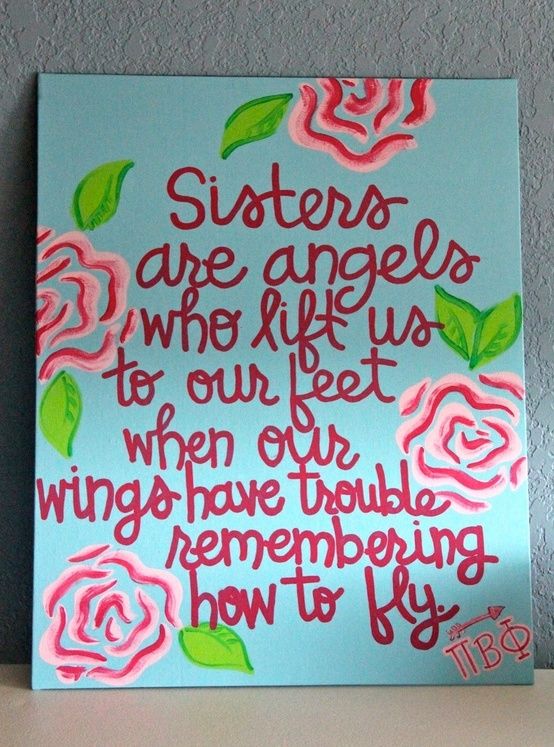 Sisters
are angels
who lift us
to our feet
when our
wings have trouble
remembering
how to fly.
ΠΒΦ